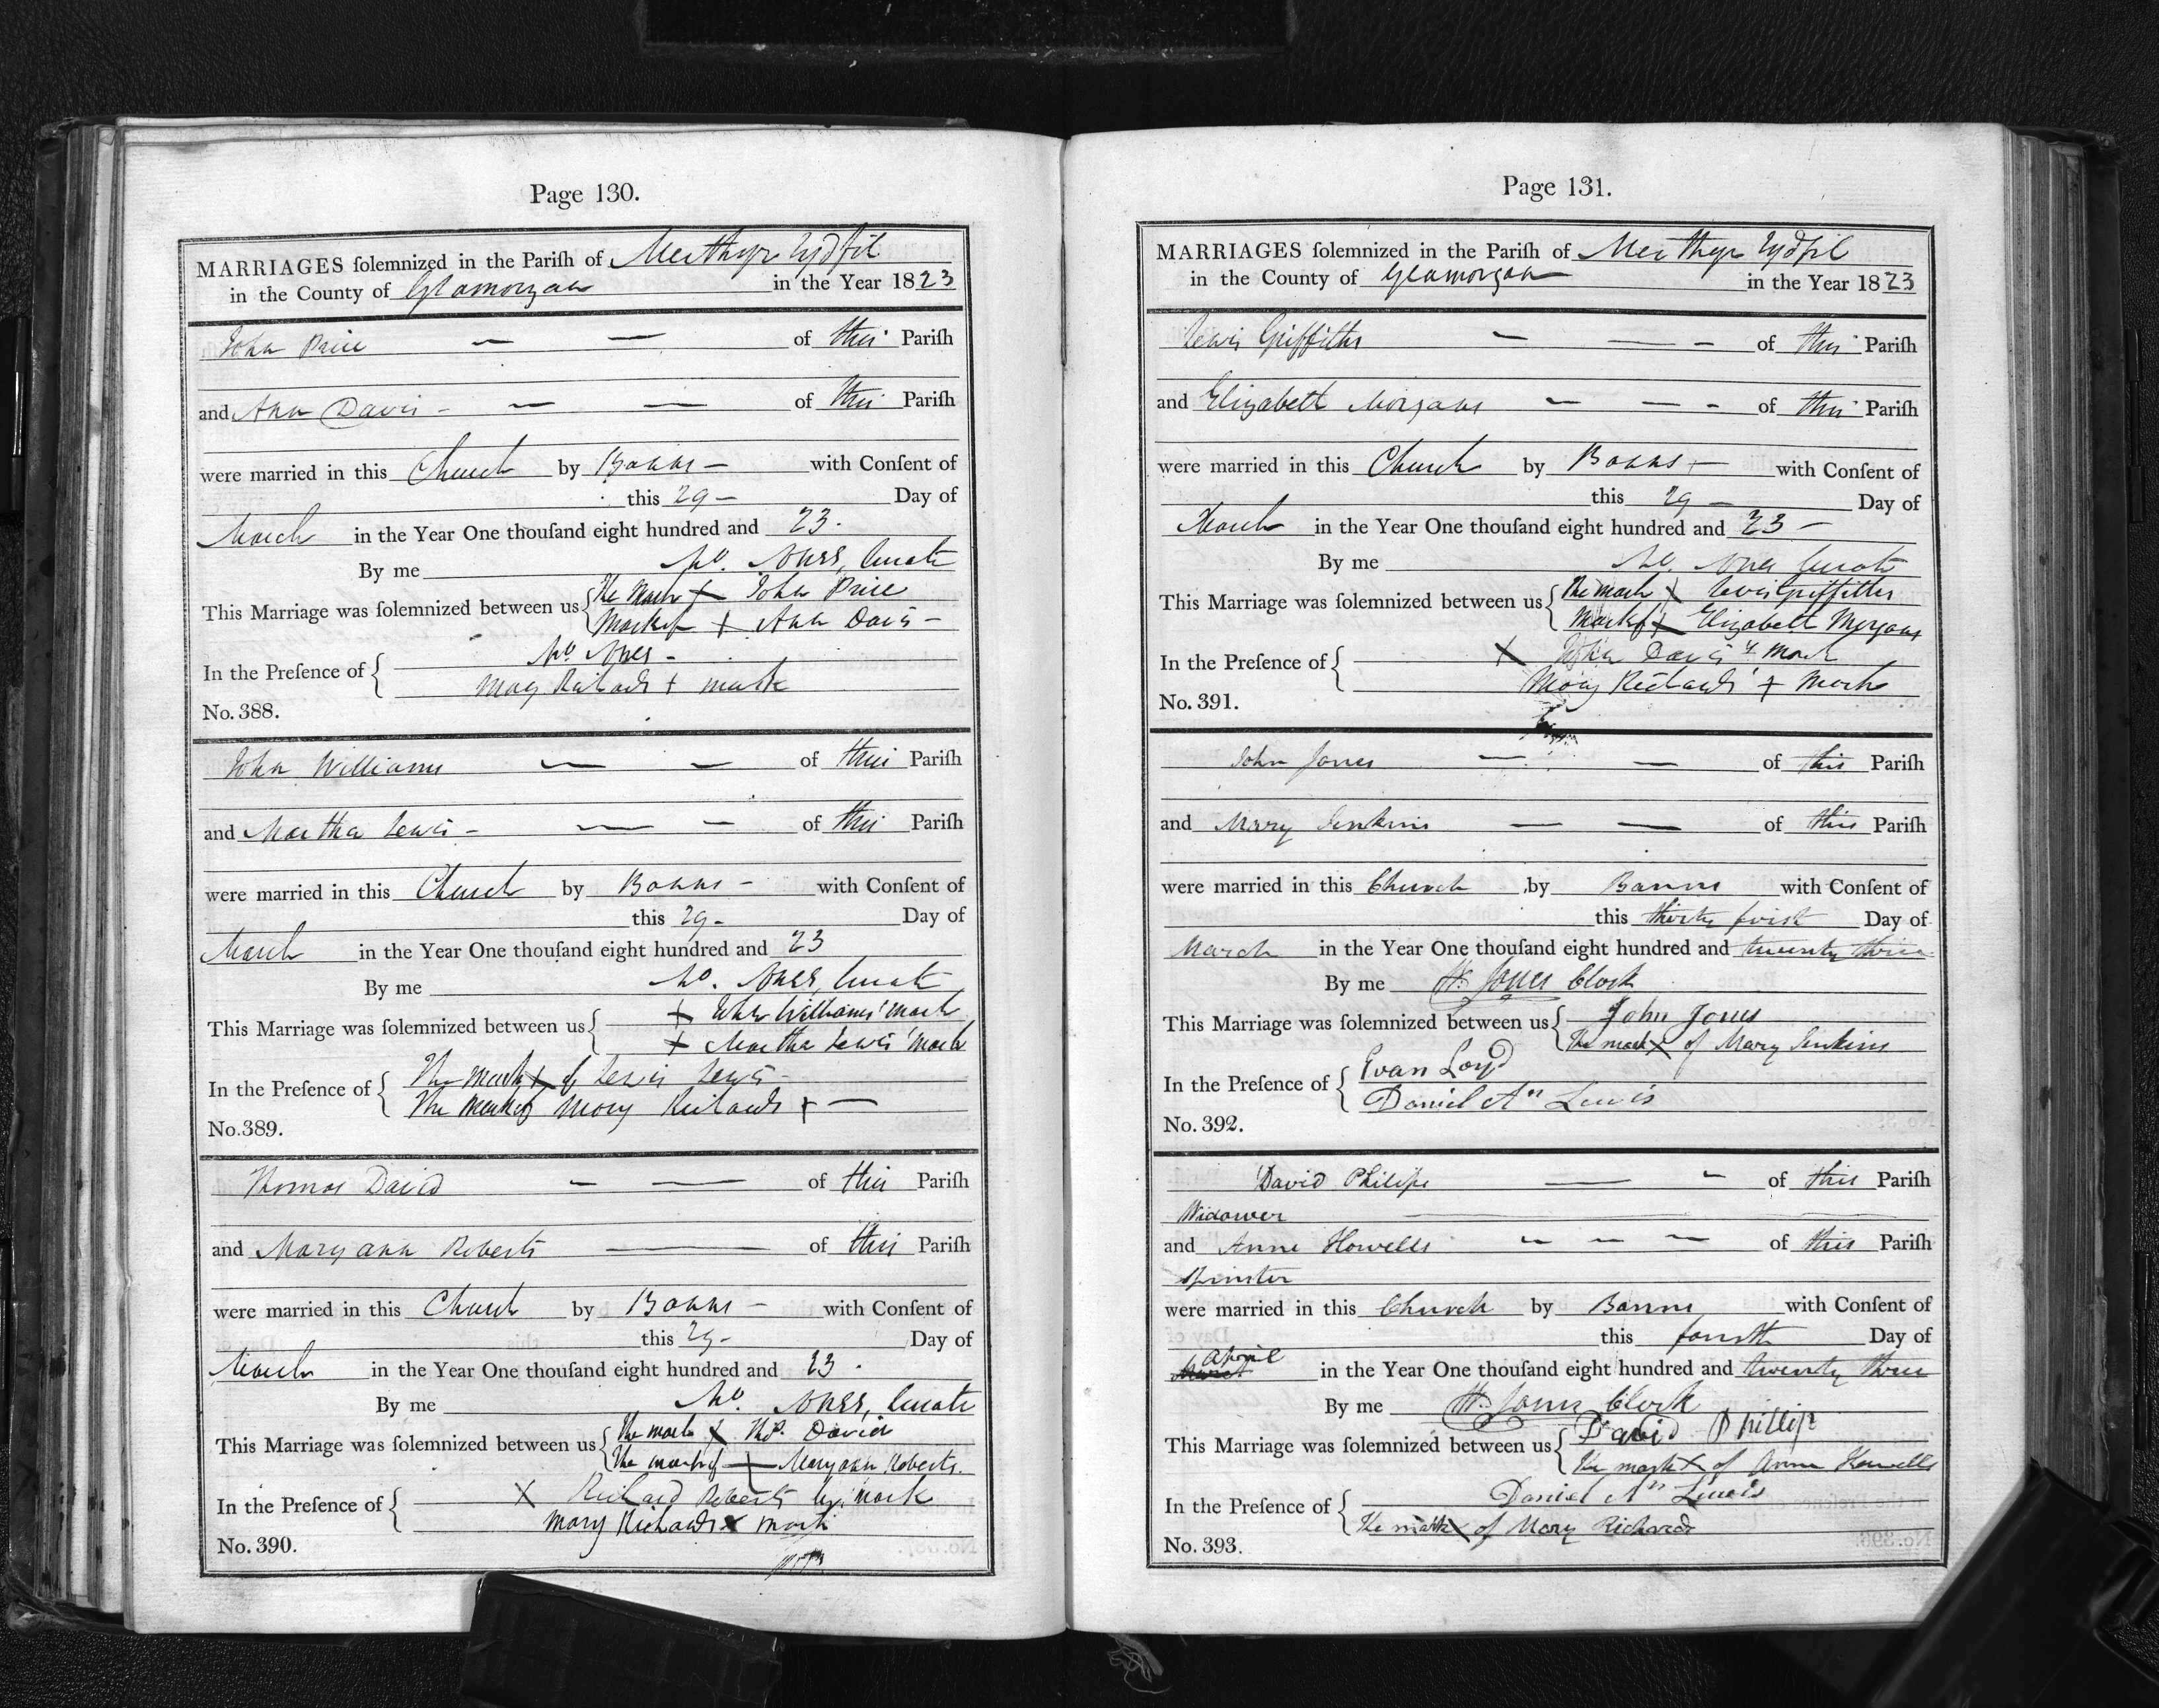 Page 130.
MARRIAGES ſolemnized in the Pariſh of Merthyr Tydfil
in the County of Glamorgan in the Year 1823
John Price — — of this Pariſh
and Ann Davis - — — of this Pariſh
were married in this Church by Banns — with Conſent of
this 29 — Day of
March in the Year One thouſand eight hundred and 23.
By me Wm. Jones, Curate
This Marriage was ſolemnized between us { The Mark + John Price
Mark of + Ann Davis —
In the Preſence of { Wm. Jones -
Mary Richards + mark
No. 388.
John Williams — — of this Pariſh
and Martha Lewis - — — of this Pariſh
were married in this Church by Banns - with Conſent of
this 29 - Day of
March in the Year One thouſand eight hundred and 23
By me Wm. Jones, Curate
This Marriage was ſolemnized between us { + John Williams' mark
+ Martha Lewis' Mark
In the Preſence of { The mark + of Lewis Lewis -
The mark of Mary Richards + —
No. 389.
Thomas David — — of this Pariſh
and Mary ann Roberts — of this Pariſh
were married in this Church by Banns - with Conſent of
this 29 - Day of
March in the Year One thouſand eight hundred and 23 .
By me Wm. Jones, Curate
This Marriage was ſolemnized between us { The mark + Thos. David
The mark of + Maryann Roberts.
In the Preſence of { X Richard Roberts his mark
Mary Richards x mark
No. 390.
Page 131.
MARRIAGES ſolemnized in the Pariſh of Merthyr Tydfil
in the County of Glamorgan in the Year 1823
Lewis Griffiths — — - of this Pariſh
and Elizabeth Morgans — — - of this Pariſh
were married in this Church by Banns — with Conſent of
this 29 — Day of
March in the Year One thouſand eight hundred and 23 —
By me Wm. Jones Curate
This Marriage was ſolemnized between us { The mark X Lewis Griffiths
Mark of + Elizabeth Morgans
In the Preſence of { X John Davis's mark
Mary Richards' + Mark
No. 391.
John Jones — — of this Pariſh
and Mary Jenkins — — of this Pariſh
were married in this Church by Banns with Conſent of
this thirty first Day of
March in the Year One thouſand eight hundred and twenty three
By me H. Jones Clerk
This Marriage was ſolemnized between us { John Jones
The mark X of Mary Jenkins
In the Preſence of { Evan Loyd
Daniel An Lewis
No. 392.
David Philips — - of this Pariſh
Widower
and Anne Howells — — — of this Pariſh
Spinster
were married in this Church by Banns with Conſent of
this fourth Day of
April
March in the Year One thouſand eight hundred and twenty three
By me H. Jones Clerk
This Marriage was ſolemnized between us { David Phillip
The mark X of Anne Howells
In the Preſence of { Daniel An Lewis
The mark X of Mary Richards
No. 393.